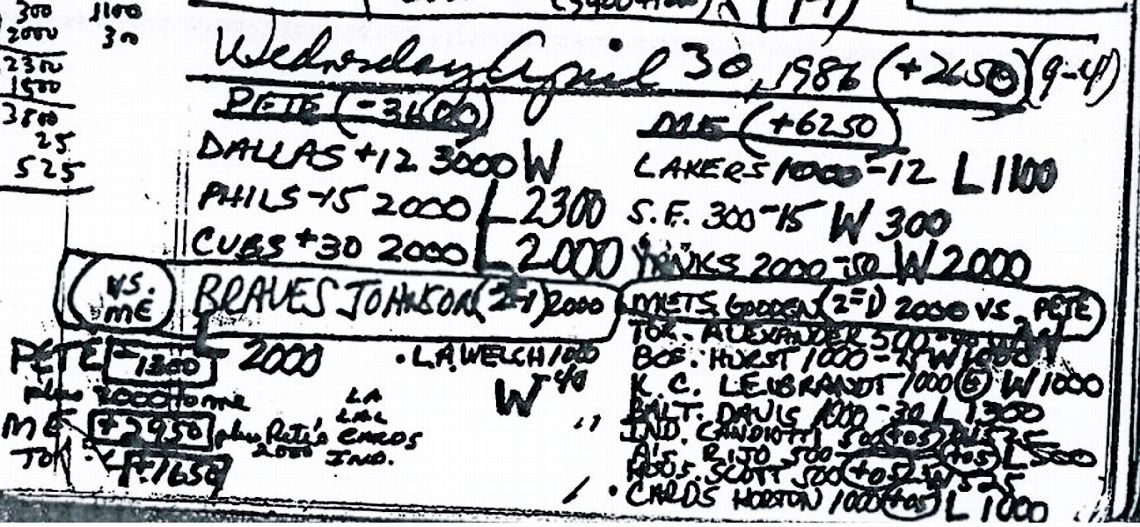 300 1100
2000 300
2300
1500
3800
25
525
Wednesday April 30, 1986 (+2650) (9-4)
PETE (-3600)
DALLAS +12 3000 W
PHILS -15 2000 L 2300
CUBS +30 2000 L 2000
VS. ME BRAVES JOHNSON (2-1) 2000
L 2000
PETE -1300
plus 2000 to me
ME +2950 plus Pete's 2000
TOT. +1650
L.A. WELCH 1000 -140
W
LA
LAL
CARDS
IND.
ME (+6250)
LAKERS 1000 -12 L 1100
S.F. 300 -15 W 300
YANKS 2000 -50 W 2000
METS GOODEN (2-1) 2000 VS. PETE
W
TOR. ALEXANDER 500
BOS. HURST 1000 W 1000
K.C. LEIBRANDT 1000 W 1000
BALT. DAVIS 1000 -30 L 1300
IND. CANDIOTTI 500 +05 525
A'S RIJO 500 +05 L 500
HOUS. SCOTT 500 +05 525
CARDS HORTON 1000 +05 L 1000